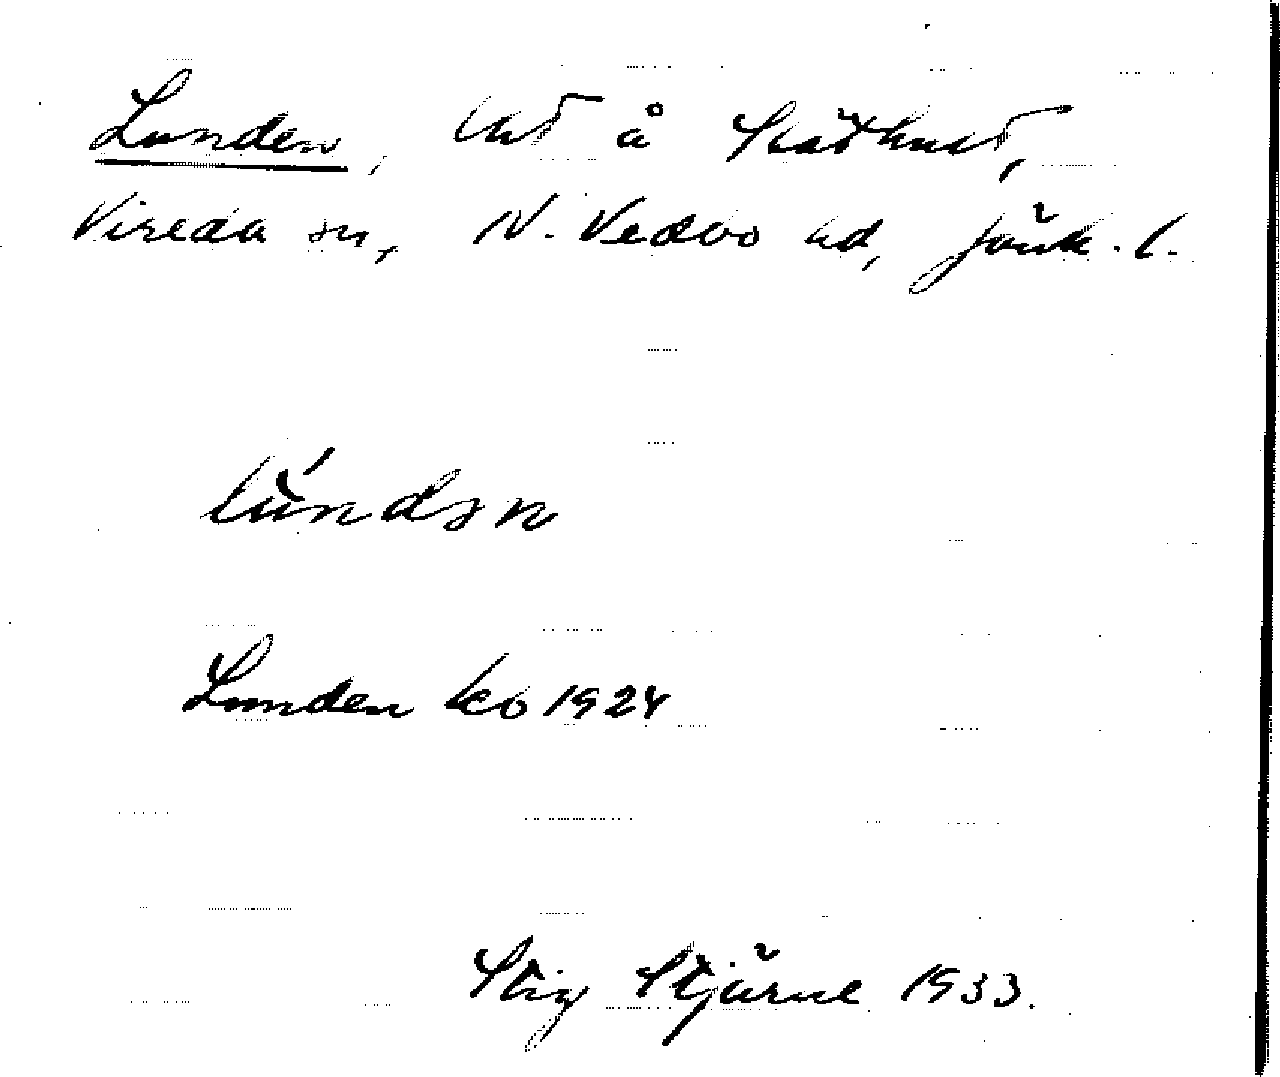 Lunden, lht å Släthult,
Vireda sn, N. Vedbo hd, Jönk. l.
lúndən
Lunden kb 1924
Stig Stjärne 1933.